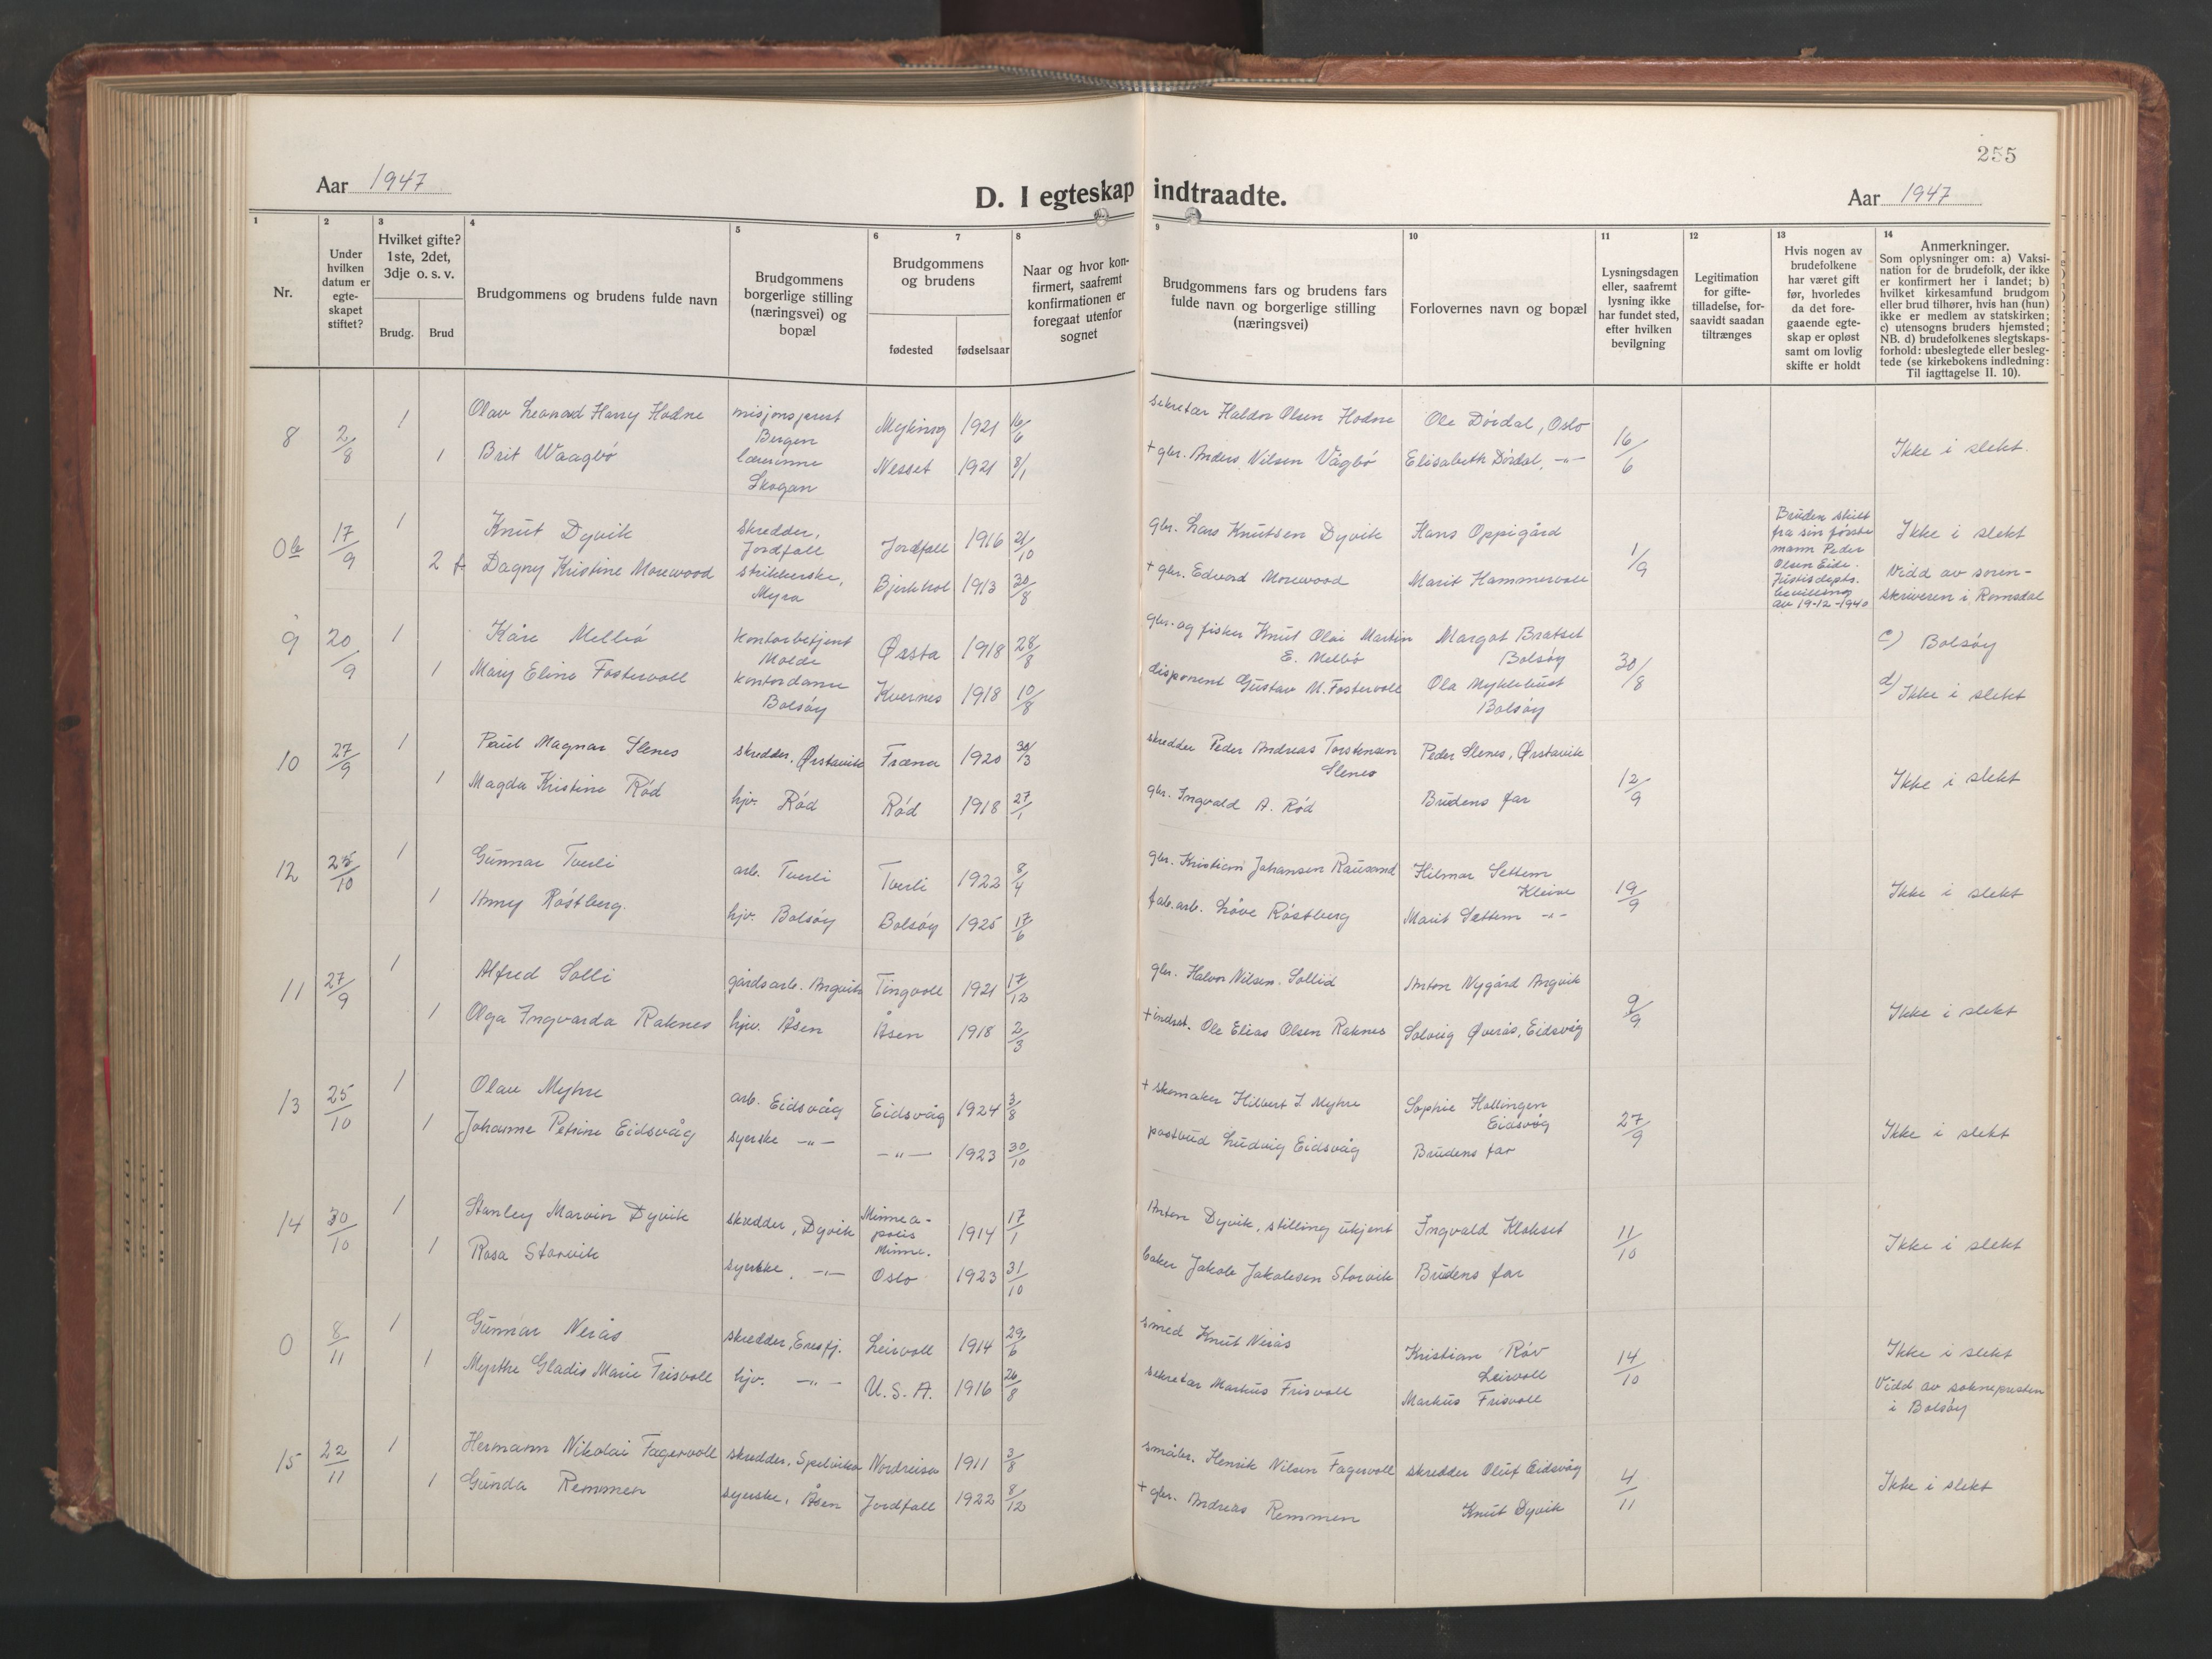 255
Aar 1947
D. I egteskap indtraadte.
Aar 1947
1
2
3
4
5
6
7
8
9
10
11
12
13
14
Nr.
Under
hvilken
datum er
egte-
skapet
stiftet?
Hvilket gifte?
1ste, 2det,
3dje o. s. v.
Brudg.
Brud
Brudgommens og brudens fulde navn
Brudgommens
borgerlige stilling
(næringsvei) og
bopæl
Brudgommens
og brudens
fødested
fødselsaar
Naar og hvor kon-
firmert, saafremt
konfirmationen er
foregaat utenfor
sognet
Brudgommens fars og brudens fars
fulde navn og borgerlige stilling
(næringsvei)
Forlovernes navn og bopæl
Lysningsdagen
eller, saafremt
lysning ikke
har fundet sted,
efter hvilken
bevilgning
Legitimation
for gifte-
tilladelse, for-
saavidt saadan
tiltrænges
Hvis nogen av
brudefolkene
har været gift
før, hvorledes
da det fore-
gaaende egte-
skap er opløst
samt om lovlig
skifte er holdt
Anmerkninger.
Som oplysninger om: a) Vaksi-
nation for de brudefolk, der ikke
er konfirmert her i landet; b)
hvilket kirkesamfund brudgom
eller brud tilhører, hvis han (hun)
ikke er medlem av statskirken;
c) utensogns bruders hjemsted;
NB. d) brudefolkenes slegtskaps-
forhold: ubeslegtede eller besleg-
tede (se kirkebokens indledning:
Til iagttagelse II. 10).
8
2/8
1
Olav Leonard Harry Hodne
misjonsprest
Bergen
Myking
1921
16/6
sekretær Haldor Olsen Hodne
Ole Dördal, Oslo
16/6
Ikke i slekt.
1
Brit Waagbö
lærerinne
Skogan
Nesset
1921
8/1
+ gbr. Anders Nilsen Vågbö
Elisabeth Dördal, -"-
0b
17/9
1
Knut Dyvik
skredder,
Jordfall
Jordfall
1916
21/10
gbr. Lars Knutsen Dyvik
Hans Oppigård
1/9
Bruden skilt
fra sin første
mann Peder
Olsen Eide.
Justisdepts.
bevilling
av 19-12-1940
Ikke i slekt
2 f.
Dagny Kristine Morewood
strikkerske,
Myra
Bjerkhol
1913
30/8
+ gbr. Edvard Morewood
Marit Hammervoll
Vidd av soren-
skriveren i Romsdal
9
20/9
1
Kåre Melbö
kontorbetjent
Molde
Ørsta
1918
28/8
gbr. og fisker Knut Olai Martin
E. Melbö
Margot Bratset
Bolsöy
30/8
c) Bolsöy
1
Mary Eline Fostervoll
kontordame
Bolsöy
Kvernes
1918
10/8
disponent Gustav M. Fostervoll
Ola Myklebust
Bolsöy
d) Ikke i slekt
10
27/9
1
Paul Magnar Slenes
skredder, Ørstavik
Fræna
1920
30/3
skredder Peder Andreas Torstensen
Slenes
Peder Slenes, Ørstavik
12/9
Ikke i slekt
1
Magda Kristine Röd
hjv. Röd
Röd
1918
27/1
gbr. Ingvald A. Röd
Brudens far
12
25/10
1
Gunnar Tverli
arb. Tverli
Tverli
1922
8/4
gbr. Kristian Johansen Rausand
Hilmar Settem
Kleive
19/9
Ikke i slekt
1
Anny Röstberg.
hjv. Bolsöy
Bolsöy
1925
17/6
fab.arb. Löve Röstberg
Marit Settem -"-
11
27/9
1
Alfred Solli
gårdsarb. Angvik
Tingvoll
1921
17/12
gbr. Halvor Nilsen Sollid
Anton Nygård Angvik
9/9
Ikke i slekt
1
Olga Ingvarda Raknes
hjv. Åsen
Åsen
1918
2/3
+ indrst. Ole Elias Olsen Raknes
Solveig Øverås, Eidsvåg
13
25/10
1
Olav Myhre
arb. Eidsvåg
Eidsvåg
1924
3/8
+ skomaker Hilbert J. Myhre
Sophie Hollingen
Eidsvåg
27/9
Ikke i slekt
1
Johanne Petrine Eidsvåg
syerske -"-
-"-
1923
30/10
postbud Ludvig Eidsvåg
Brudens far
14
30/10
1
Stanley Marvin Dyvik
skredder, Dyvik
Minnea-
polis
Minne.
1914
17/1
Anton Dyvik, stilling ukjent
Ingvald Klokset
11/10
Ikke i slekt
1
Rosa Storvik
syerske, -"-
Oslo
1923
31/10
baker Jakob Jakobsen Storvik
Brudens far
0
8/11
1
Gunnar Nerås
skredder, Eresfj.
Leirvoll
1914
29/6
smed Knut Nerås
Kristian Röv
Leirvoll
14/10
Ikke i slekt
1
Myrthe Gladis Marie Frisvoll
hjv. -"-
U.S.A.
1916
26/8
sekretær Markus Frisvoll
Markus Frisvoll
Vidd av sokneprersten
i Bolsöy
15
22/11
1
Hermann Nikolai Fagervoll
skredder, Spelvika
Nordreisa
1911
3/8
småbr. Henrik Nilsen Fagervoll
skredder Oluf Eidsvåg
4/11
Ikke i slekt
1
Gunda Remmen
syerske, Åsen
Jordfall
1922
8/12
+ gbr. Andreas Remmen
Knut Dyvik